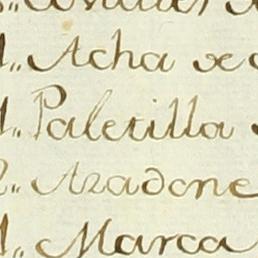 1,, Acha de
1,, Paletilla
2,, Azadone
1,, Marca